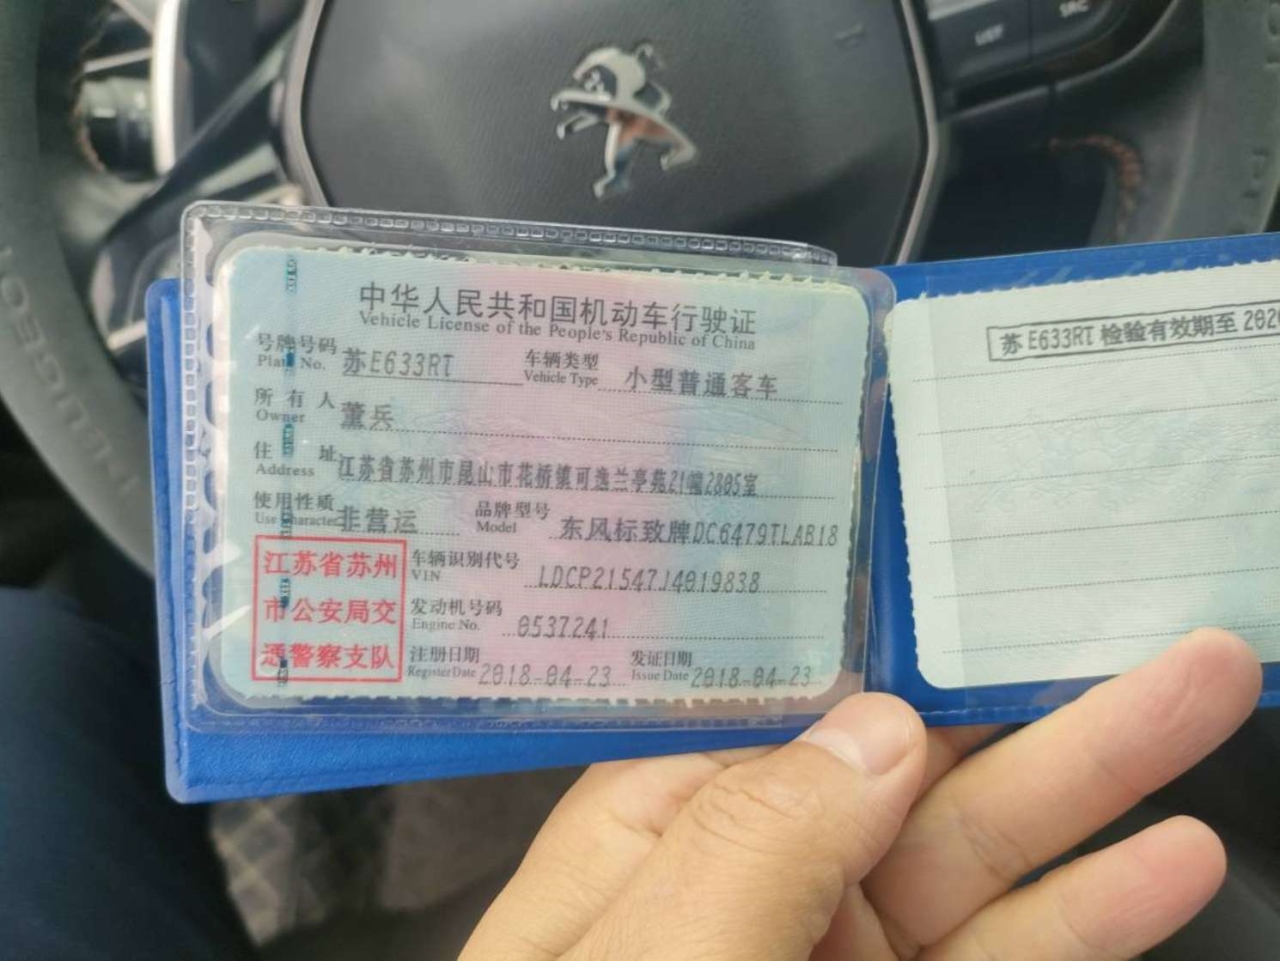 中华人民共和国机动车行驶证
Vehicle License of the People's Republic of China
号牌号码 苏E633RT 车辆类型 小型普通客车
Plate No. Vehicle Type
所有人 董兵
Owner
住址 江苏省苏州市昆山市花桥镇可逸兰亭苑21幢2805室
Address
使用性质 非营运 品牌型号 东风标致牌DC6479TLAB18
Use Character Model
江苏省苏州
市公安局交
通警察支队
车辆识别代号 LDCP21547J4019838
VIN
发动机号码 0537241
Engine No.
注册日期 2018-04-23 发证日期 2018-04-23
Register Date Issue Date
苏E633RT 检验有效期至 2020
PEUGEOT
LIST
SRC